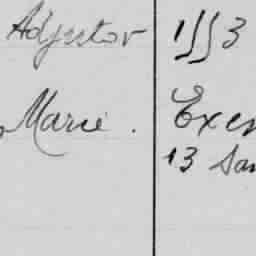 Adjutor 1553
Marie. Exer
13 Jan